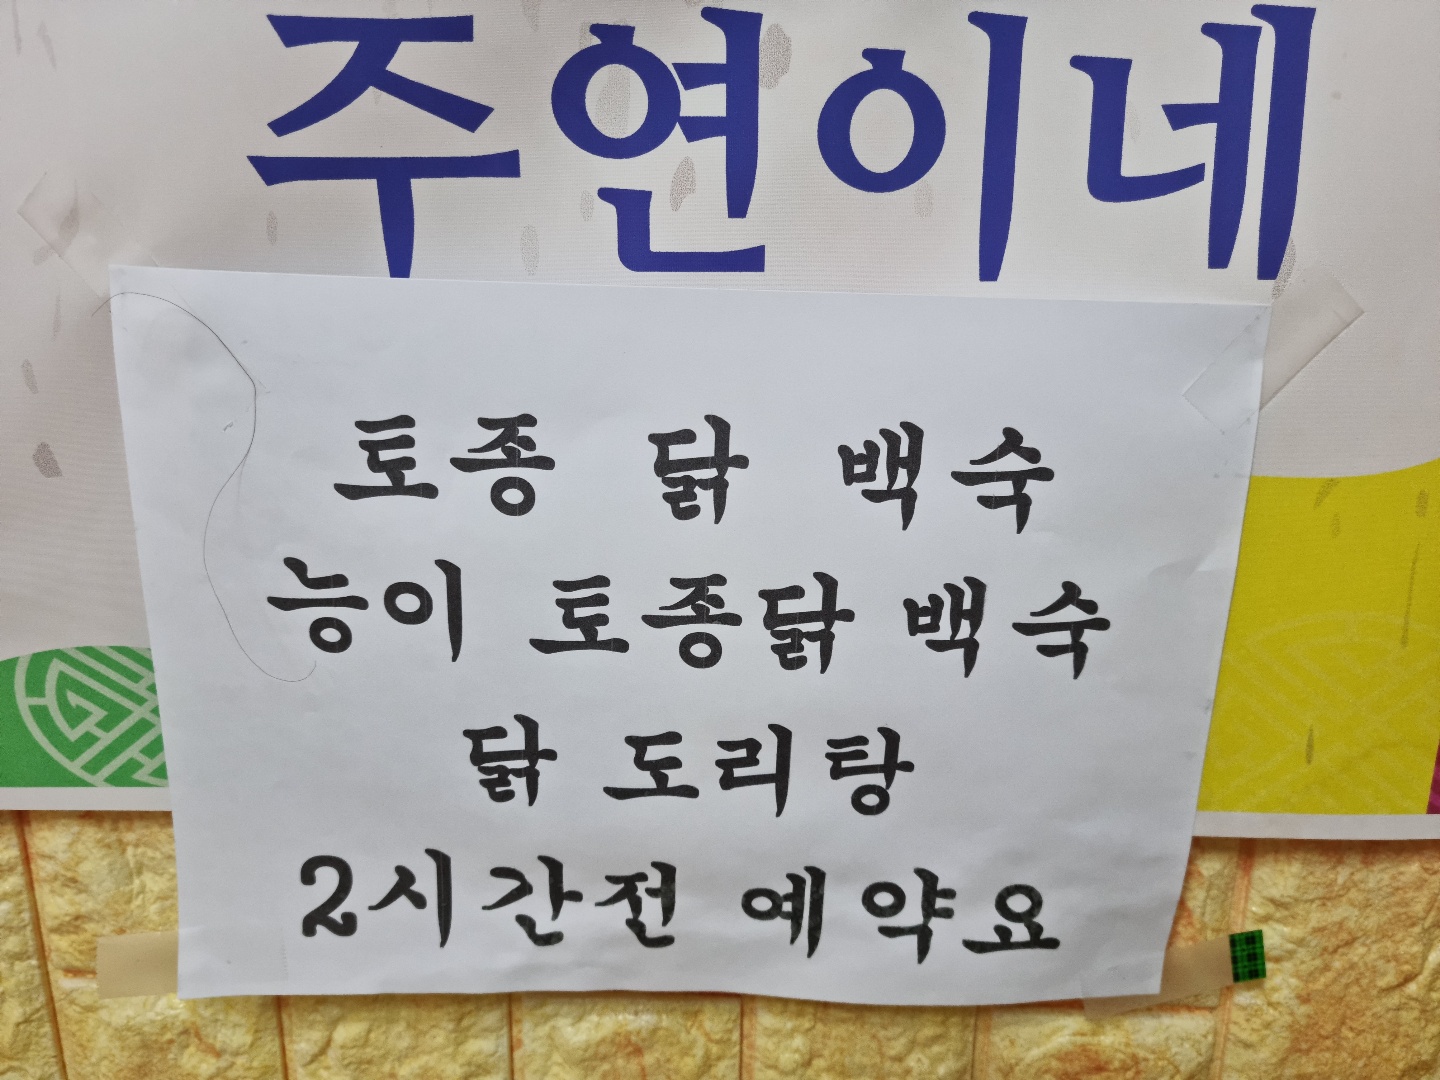 주연이네
토종 닭 백숙
능이 토종닭 백숙
닭 도리탕
2시간전 예약요